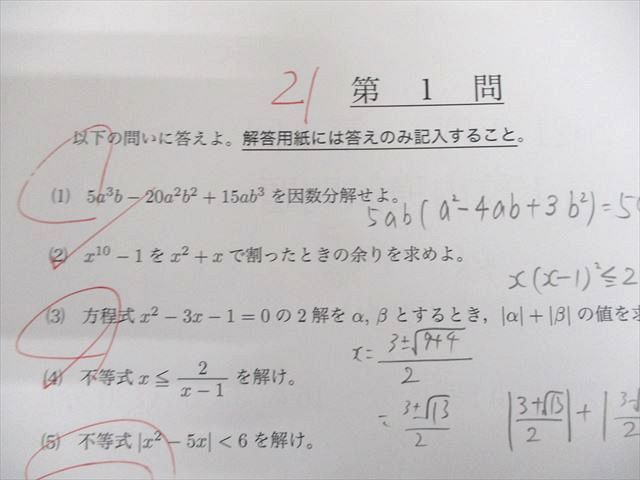 21 第 1 問
以下の問いに答えよ。解答用紙には答えのみ記入すること。
(1) 5a³b − 20a²b² + 15ab³ を因数分解せよ。
5ab(a²-4ab+3b²)=5
(2) x¹⁰ − 1 を x² + x で割ったときの余りを求めよ。
x(x-1)²≦2
(3) 方程式 x² − 3x − 1 = 0 の 2 解を α, β とするとき, |α| + |β| の値を求
x= 3±√9+4 / 2
(4) 不等式 x ≦ 2 / x − 1 を解け。
= 3±√13 / 2 |3+√13 / 2| + |3-√ / 2
(5) 不等式 |x² − 5x| < 6 を解け。